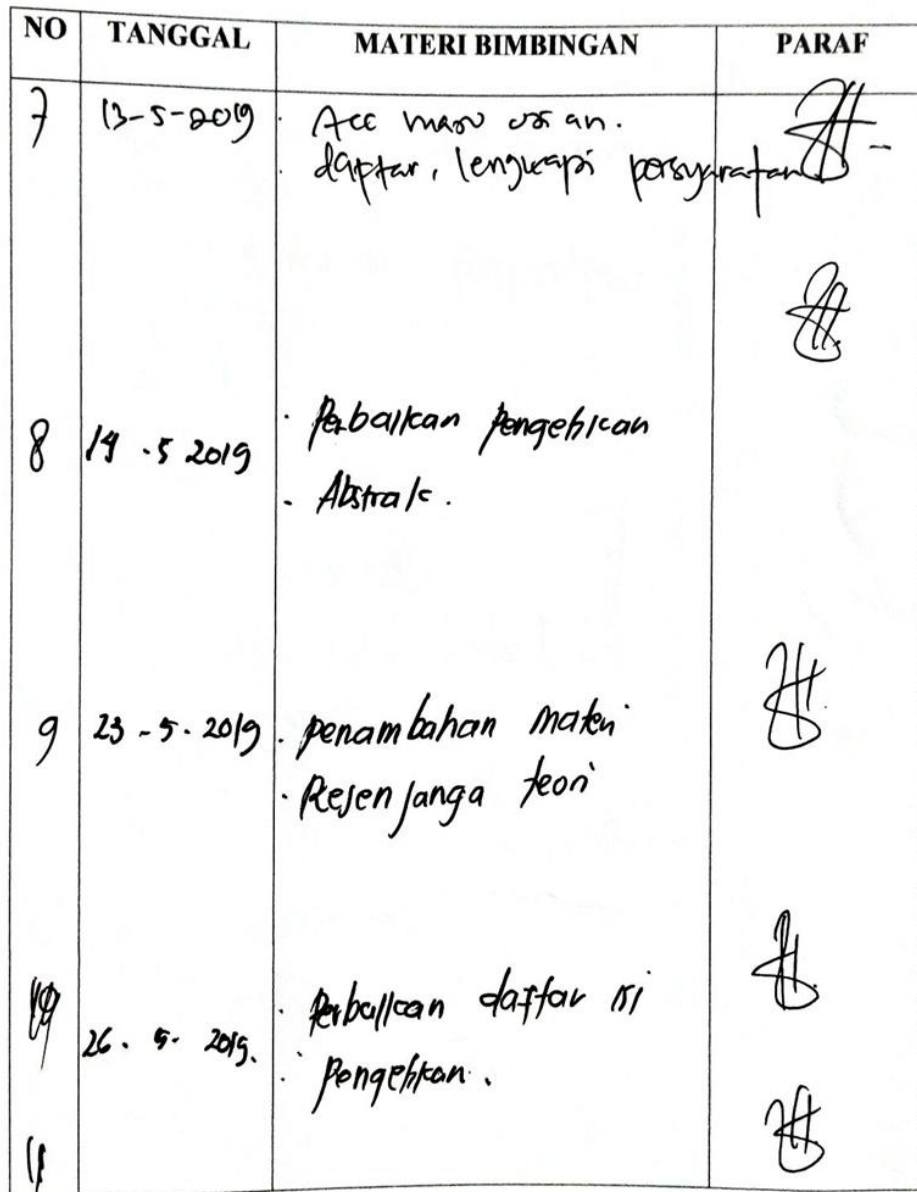 NO TANGGAL MATERI BIMBINGAN PARAF
7 13-5-2019 . Acc
daptar, lengkapi persyaratan
8 14 .5 2019 . Perbaikan pengetikan
. Abstrak .
9 23 - 5 . 2019 . penambahan materi
. teori
10 . Perbaikan daftar isi
26 . 5 . 2019 . . pengetikan .
11